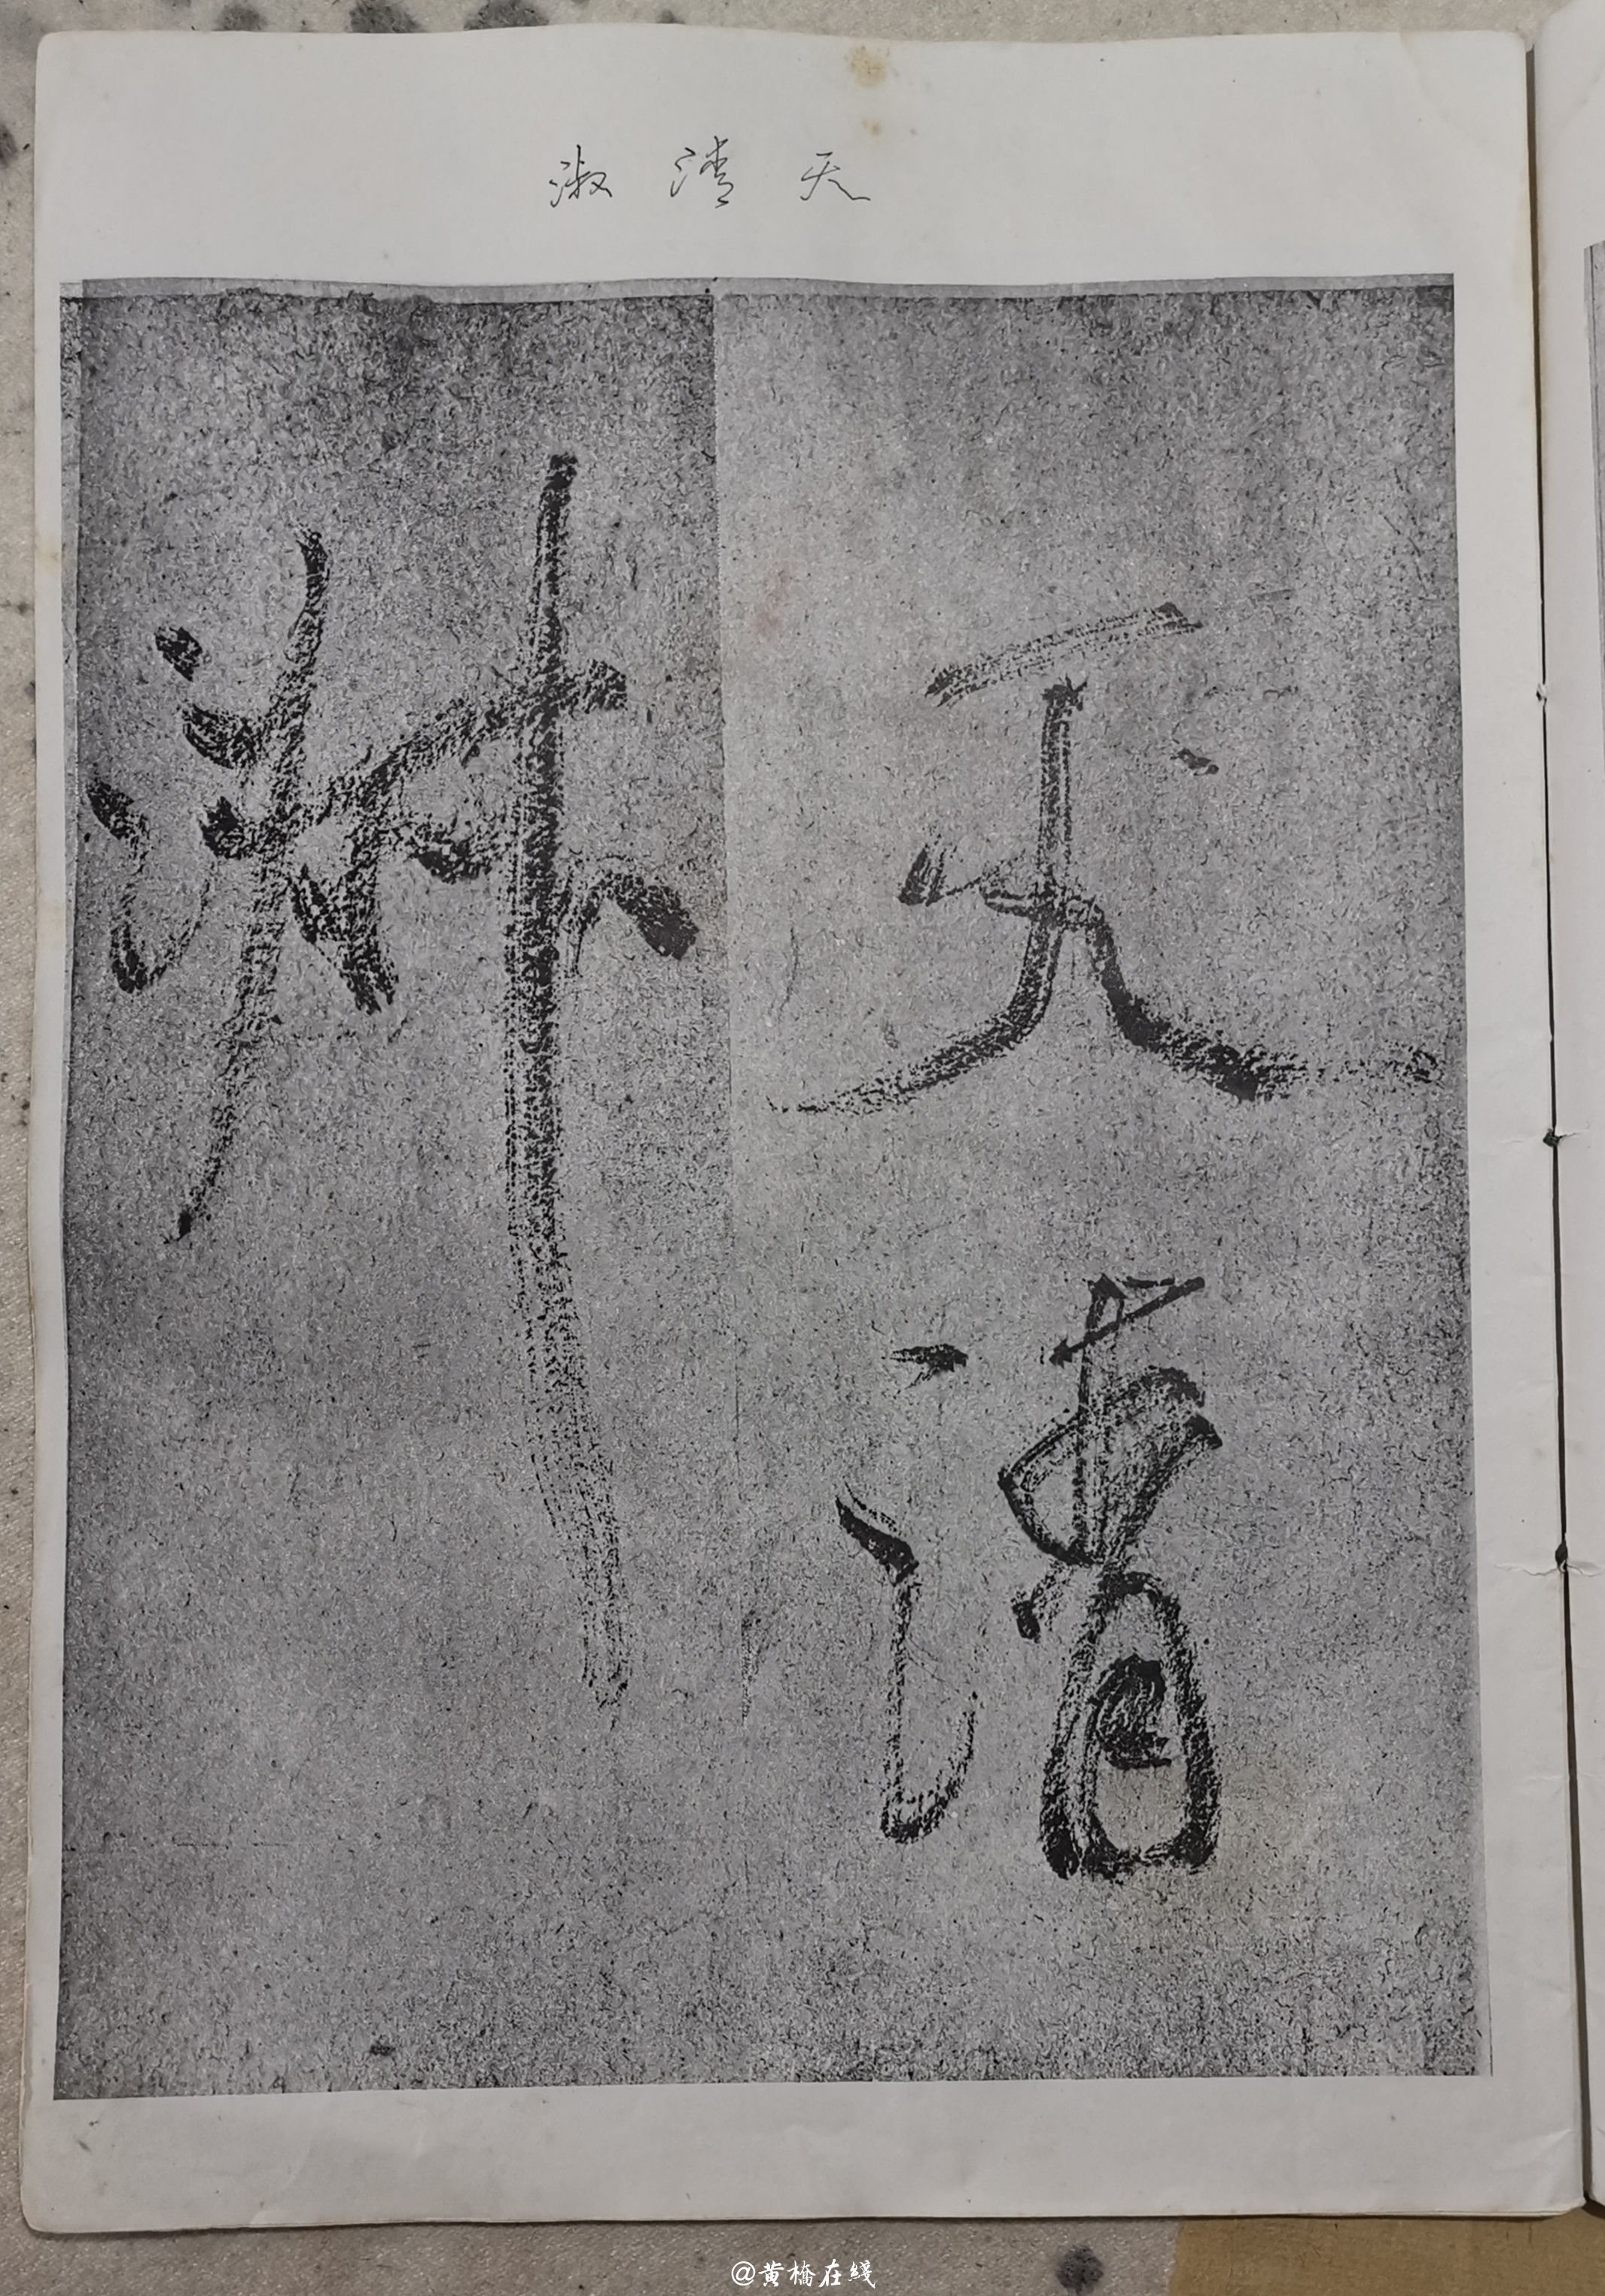 天清淑
天清
淑
@黄橋在綫